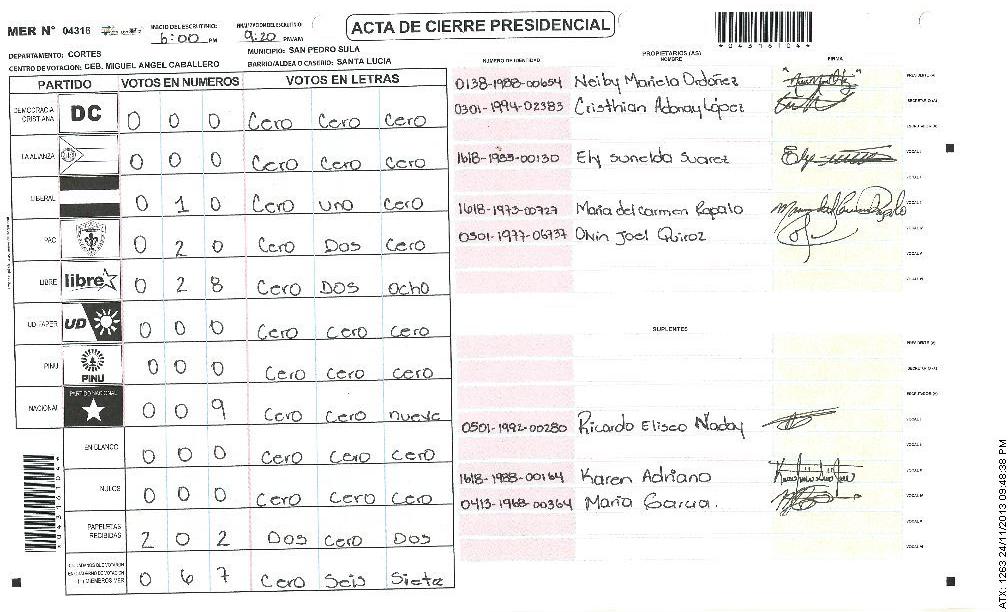 MER N° 04316
INICIO DEL ESCRUTINIO:
6:00 PM
9:20 PM/AM
ACTA DE CIERRE PRESIDENCIAL
*043161044*
DEPARTAMENTO: CORTES
MUNICIPIO: SAN PEDRO SULA
CENTRO DE VOTACION: CEB. MIGUEL ANGEL CABALLERO
BARRIO/ALDEA O CASERIO: SANTA LUCIA
PARTIDO VOTOS EN NUMEROS VOTOS EN LETRAS
DEMOCRACIA CRISTIANA DC 0 0 0 Cero Cero Cero
LA ALIANZA 0 0 0 Cero Cero Cero
LIBERAL 0 1 0 Cero uno Cero
PAC 0 2 0 Cero Dos Cero
LIBRE libre 0 2 8 Cero DOS ocho
UD FAPER UD 0 0 0 Cero Cero Cero
PINU PINU 0 0 0 Cero Cero Cero
NACIONAL PARTIDO NACIONAL 0 0 9 Cero Cero nueve
EN BLANCO 0 0 0 Cero Cero Cero
NULOS 0 0 0 Cero Cero Cero
PAPELETAS RECIBIDAS 2 0 2 Dos Cero Dos
0 6 7 Cero Seis Siete
PROPIETARIOS (AS)
NUMERO DE IDENTIDAD NOMBRE FIRMA
0138-1988-00654 Neiby Mariela Ordoñez
0301-1994-02383 Cristhian Adonay López
1618-1985-00130 Ely Sunelda Suarez
1618-1973-00727 Maria del Carmen Papalo
0501-1977-06737 Olvin Joel Quiroz
SUPLENTES
0501-1992-00280 Ricardo Eliseo Naday
1618-1988-00164 Karen Adriano
0413-1968-00364 Maria Garcia.
ATX: 1263 24/11/2013 09:48:38 PM